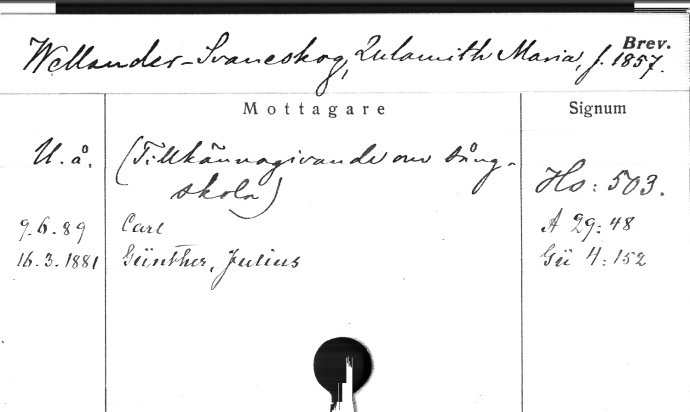 Brev.
Wellander-Svaneskog, Zulamith Maria, f. 1857.
Mottagare Signum
U.å. (Tillkännagivande om sång-
skola) Hs: 503.
9.6.89 Carl A 29:48
16.3.1881 Günther, Julius Gü 4:152